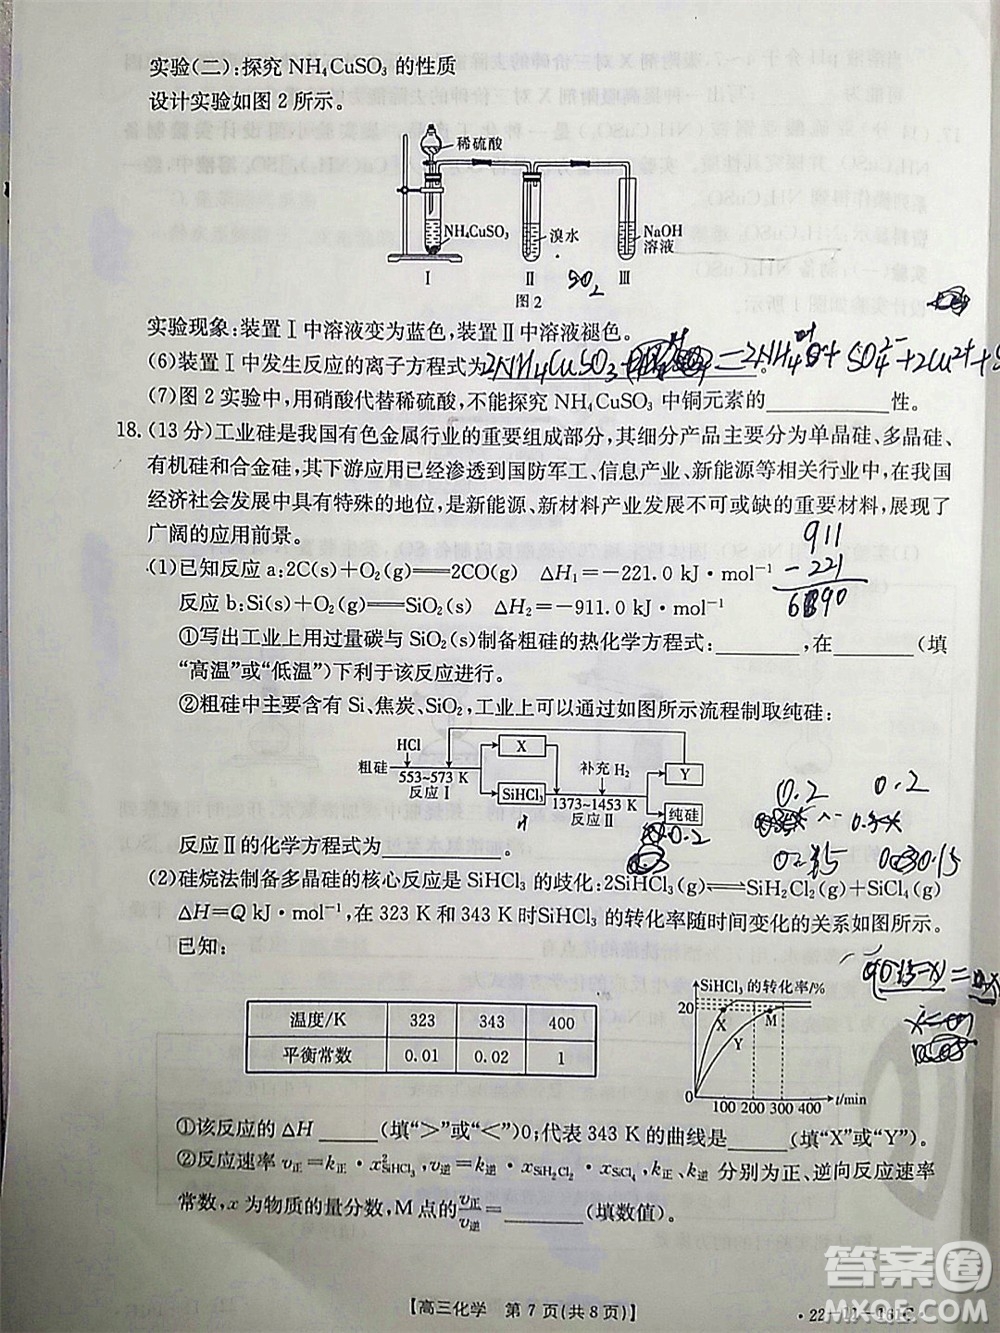 实验(二):探究 NH₄CuSO₃ 的性质
设计实验如图2所示。
稀硫酸
NH₄CuSO₃
溴水
NaOH
溶液
Ⅰ Ⅱ Ⅲ
SO₂
图2
实验现象:装置Ⅰ中溶液变为蓝色,装置Ⅱ中溶液褪色。
(6)装置Ⅰ中发生反应的离子方程式为 2NH₄CuSO₃ + = 2NH₄⁺ + SO₄²⁻ + 2Cu²⁺ +
(7)图2实验中,用硝酸代替稀硫酸,不能探究 NH₄CuSO₃ 中铜元素的________性。
18.(13分)工业硅是我国有色金属行业的重要组成部分,其细分产品主要分为单晶硅、多晶硅、
有机硅和合金硅,其下游应用已经渗透到国防军工、信息产业、新能源等相关行业中,在我国
经济社会发展中具有特殊的地位,是新能源、新材料产业发展不可或缺的重要材料,展现了
广阔的应用前景。
911
- 221
690
(1)已知反应a:2C(s)+O₂(g)══2CO(g) ΔH₁=-221.0 kJ·mol⁻¹
反应b:Si(s)+O₂(g)══SiO₂(s) ΔH₂=-911.0 kJ·mol⁻¹
①写出工业上用过量碳与SiO₂(s)制备粗硅的热化学方程式:________,在________(填
“高温”或“低温”)下利于该反应进行。
②粗硅中主要含有 Si、焦炭、SiO₂,工业上可以通过如图所示流程制取纯硅:
HCl
粗硅
553~573 K
反应Ⅰ
X
SiHCl₃
补充 H₂
1373~1453 K
反应Ⅱ
Y
纯硅
0.2 0.2
0.2
0.15
反应Ⅱ的化学方程式为________。
(2)硅烷法制备多晶硅的核心反应是 SiHCl₃ 的歧化:2SiHCl₃(g)⇌SiH₂Cl₂(g)+SiCl₄(g)
ΔH=Q kJ·mol⁻¹,在 323 K 和 343 K 时SiHCl₃ 的转化率随时间变化的关系如图所示。
已知:
温度/K 323 343 400
平衡常数 0.01 0.02 1
SiHCl₃ 的转化率/%
20
X
M
Y
100 200 300 400 t/min
①该反应的 ΔH ________(填“>”或“<”)0;代表 343 K 的曲线是________(填“X”或“Y”)。
②反应速率 v正=k正·x²SiHCl₃,v逆=k逆·xSiH₂Cl₂·xSiCl₄,k正、k逆 分别为正、逆向反应速率
常数,x 为物质的量分数,M 点的 v正/v逆=________(填数值)。
【高三化学 第 7 页(共 8 页)】
·22-11-161C·
答案圈
MXQE.COM